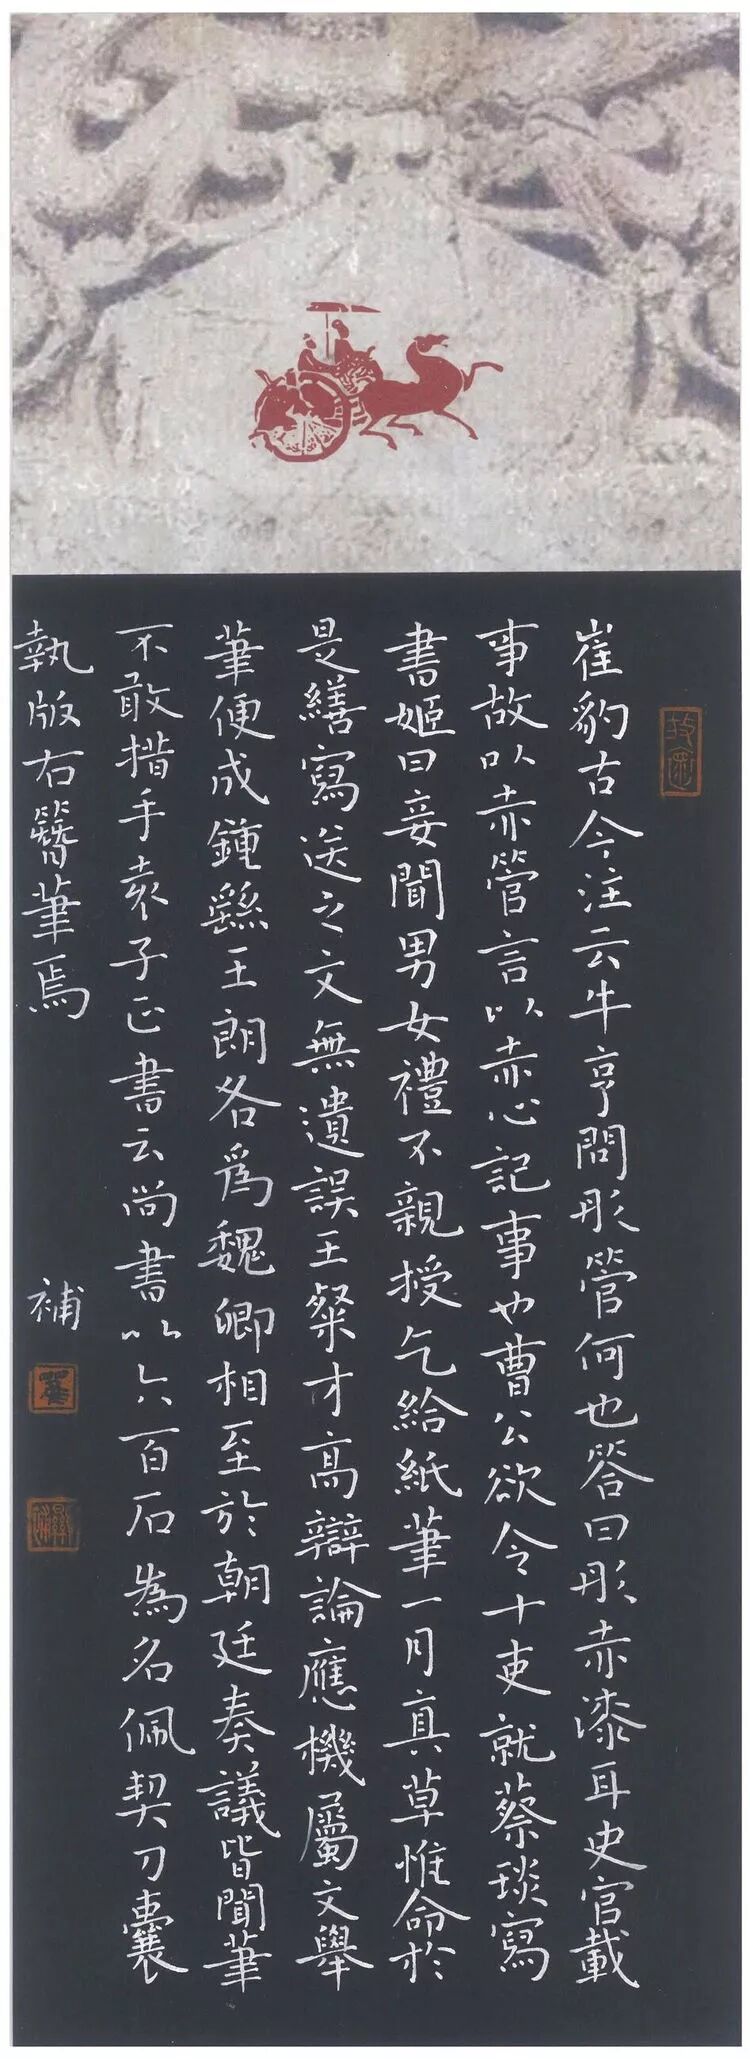 崔豹古今注云牛亨問彤管何也答曰彤赤漆耳史官載
事故以赤管言以赤心記事也曹公欲令十吏就蔡琰寫
書姬曰妾聞男女禮不親授乞給紙筆一月真草惟命於
是繕寫送之文無遺誤王粲才高辯論應機屬文舉
筆便成鍾繇王朗各為魏卿相至於朝廷奏議皆閣筆
不敢措手袁子正書云尚書以六百石為名佩契刀囊
執版右簪筆焉
補